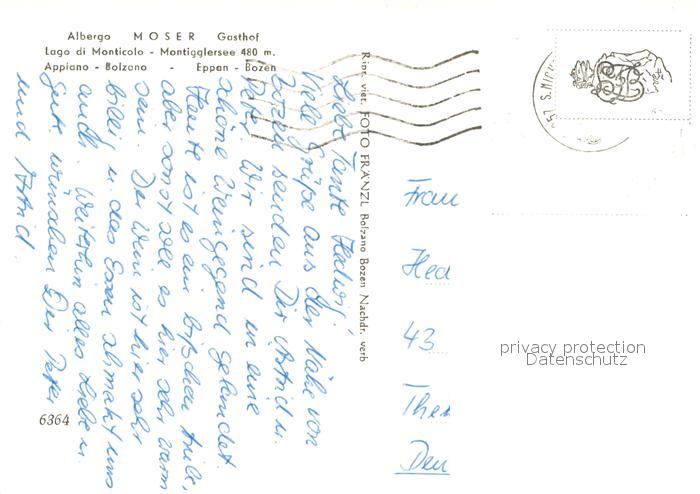 Albergo MOSER Gasthof
Lago di Monticolo - Montigglersee 480 m.
Appiano - Bolzano - Eppan - Bozen
Liebe Tante Hedwig,
Viele Grüße aus der Nähe von
Bozen senden Dir Astrid u.
Peter. Wir sind in eine
schöne Weingegend gelandet.
Heute ist es ein bißchen trübe,
aber sonst soll es hier sehr warm
sein. Der Wein ist hier sehr
billig u. das Essen schmeckt uns
auch. Weiterhin alles Liebe u.
Gute wünschen Dir Peter
und Astrid
6364
Ripr. viet. FOTO FRANZL Bolzano Bozen Nachdr. verb
Frau
Hed
43
The
Deu
privacy protection
Datenschutz